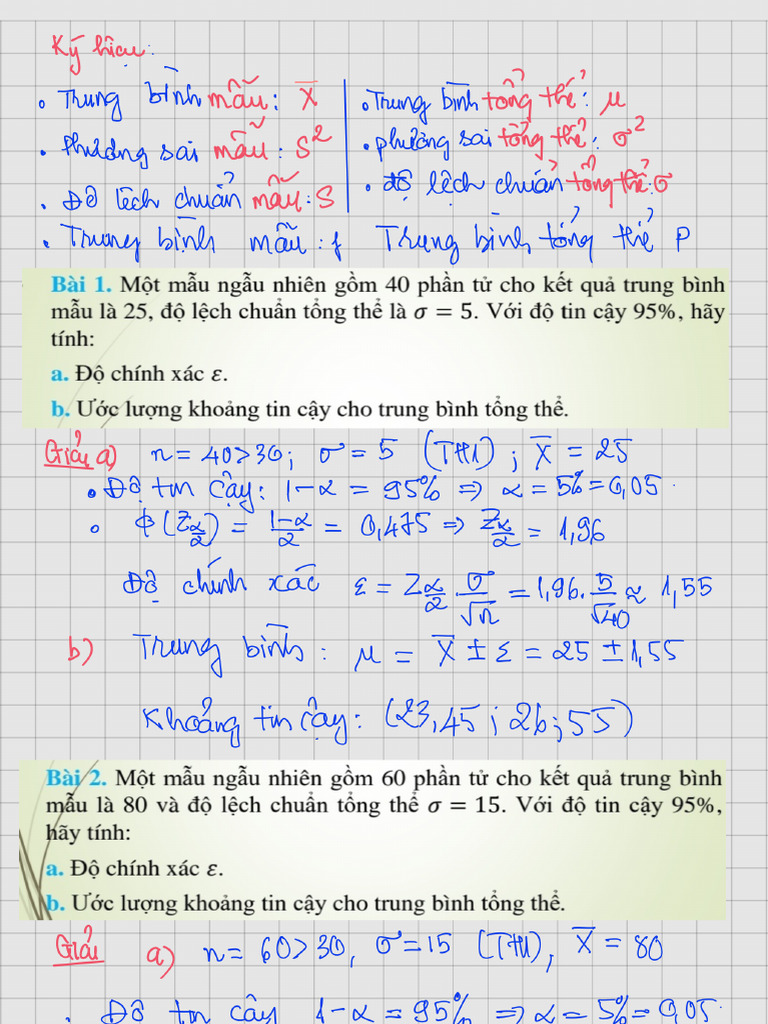 Ký hiệu:
• Trung bình mẫu: X̄ | • Trung bình tổng thể: μ
• Phương sai mẫu: S² | • phương sai tổng thể: σ²
• Độ lệch chuẩn mẫu: S | • độ lệch chuẩn tổng thể: σ
• Trung bình mẫu: f Trung bình tổng thể P
Bài 1. Một mẫu ngẫu nhiên gồm 40 phần tử cho kết quả trung bình
mẫu là 25, độ lệch chuẩn tổng thể là σ = 5. Với độ tin cậy 95%, hãy
tính:
a. Độ chính xác ε.
b. Ước lượng khoảng tin cậy cho trung bình tổng thể.
Giải a) n = 40 > 30; σ = 5 (TH1); X̄ = 25
• Độ tin cậy: 1-α = 95% => α = 5% = 0,05.
• Φ(Z_{α/2}) = (1-α)/2 = 0,475 => Z_{α/2} = 1,96
Độ chính xác ε = Z_{α/2} σ/√n = 1,96. 5/√40 ≈ 1,55
b) Trung bình: μ = X̄ ± ε = 25 ± 1,55
Khoảng tin cậy: (23,45; 26,55)
Bài 2. Một mẫu ngẫu nhiên gồm 60 phần tử cho kết quả trung bình
mẫu là 80 và độ lệch chuẩn tổng thể σ = 15. Với độ tin cậy 95%,
hãy tính:
a. Độ chính xác ε.
b. Ước lượng khoảng tin cậy cho trung bình tổng thể.
Giải a) n = 60 > 30, σ = 15 (TH1), X̄ = 80
• Độ tin cậy 1-α = 95% => α = 5% = 0,05.